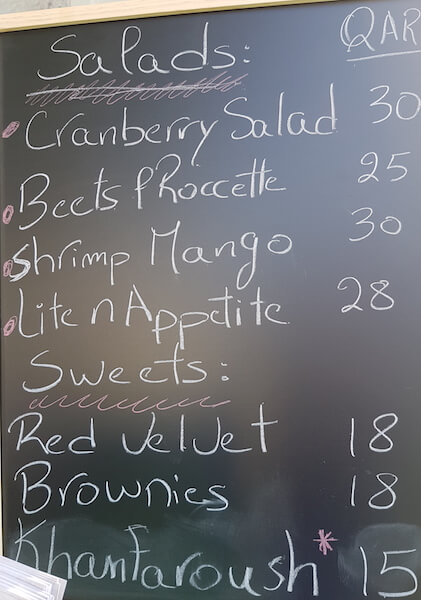 QAR
Salads:
Cranberry Salad 30
Beets & Roccette 25
Shrimp Mango 30
Lite n Appetite 28
Sweets:
Red Velvet 18
Brownies 18
Khanfaroush* 15